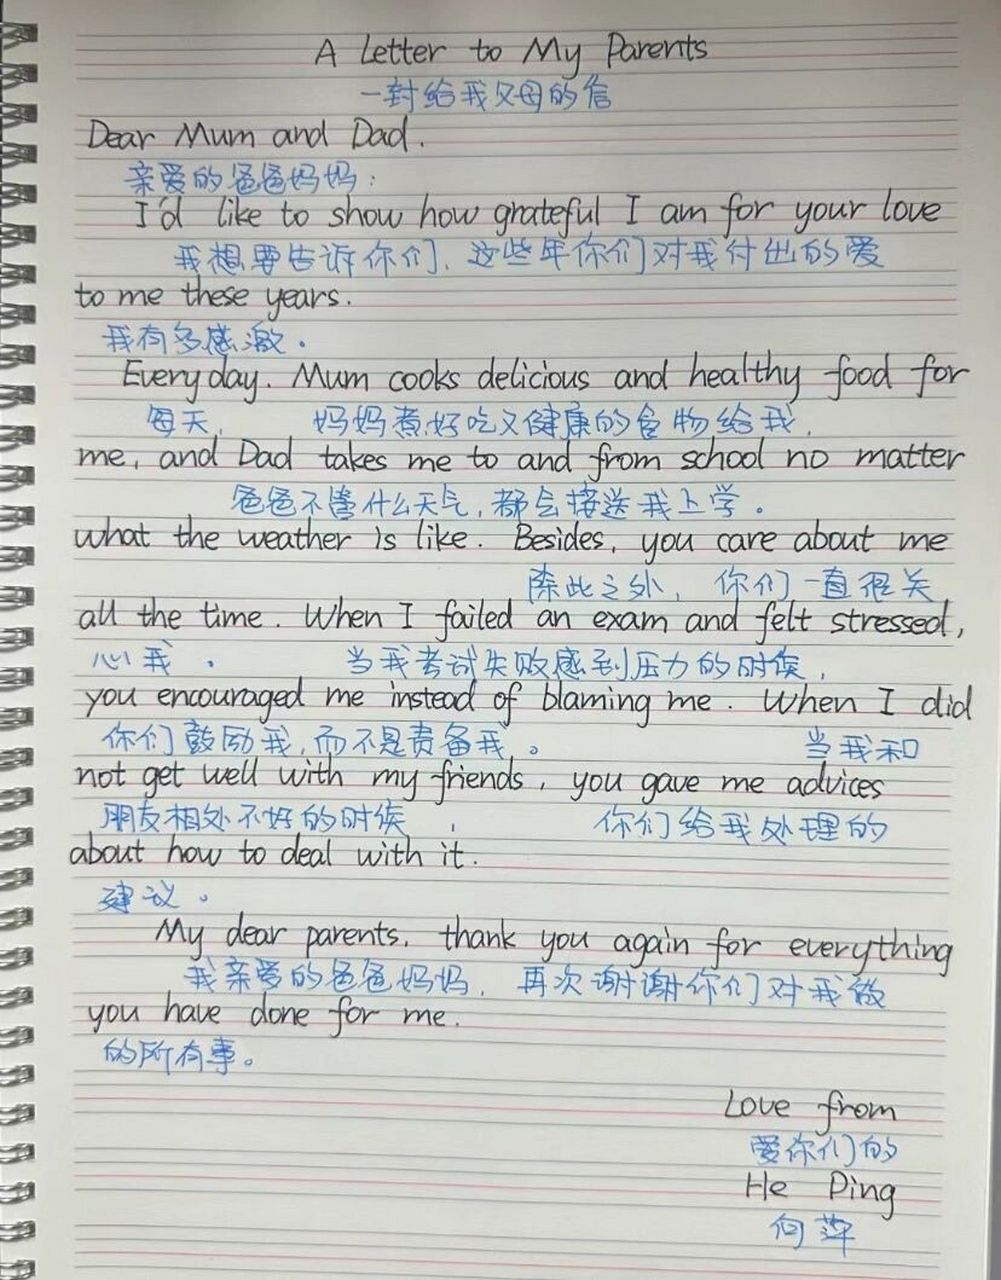 A Letter to My Parents
一封给我父母的信
Dear Mum and Dad.
亲爱的爸爸妈妈：
I'd like to show how grateful I am for your love
我想要告诉你们，这些年你们对我付出的爱
to me these years.
我有多感激。
Every day. Mum cooks delicious and healthy food for
每天，妈妈煮好吃又健康的食物给我，
me, and Dad takes me to and from school no matter
爸爸不管什么天气，都会接送我上学。
what the weather is like. Besides, you care about me
除此之外，你们一直很关
all the time. When I failed an exam and felt stressed,
心我。当我考试失败感到压力的时候，
you encouraged me instead of blaming me. When I did
你们鼓励我，而不是责备我。当我和
not get well with my friends, you gave me advices
朋友相处不好的时候，你们给我处理的
about how to deal with it.
建议。
My dear parents, thank you again for everything
我亲爱的爸爸妈妈，再次谢谢你们对我做
you have done for me.
的所有事。
Love from
爱你们的
He Ping
何萍